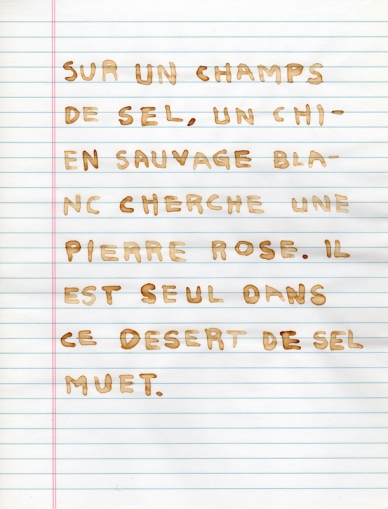 SUR UN CHAMPS
DE SEL, UN CHI-
EN SAUVAGE BLA-
NC CHERCHE UNE
PIERRE ROSE. IL
EST SEUL DANS
CE DESERT DE SEL
MUET.